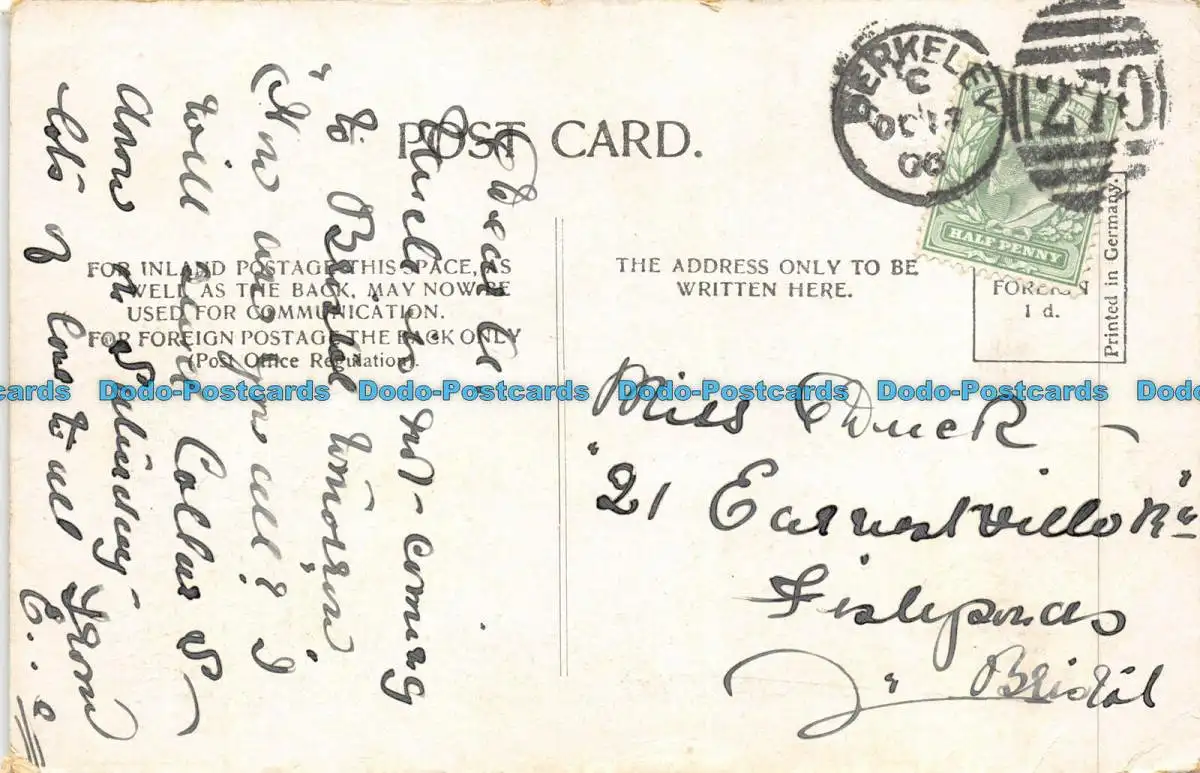 POST CARD.
FOR INLAND POSTAGE THIS SPACE, AS
WELL AS THE BACK, MAY NOW BE
USED FOR COMMUNICATION.
FOR FOREIGN POSTAGE THE BACK ONLY
(Post Office Regulation).
THE ADDRESS ONLY TO BE
WRITTEN HERE.
BERKELEY
C
OC 17
06
270
HALF PENNY
FOREIGN
1 d.
Printed in Germany.
Dear
Uncle is not coming
to Bristol
How are you all? I
will Collar &
on Saturday
lots of love to all from
E.
Miss Duck
21 Earnestville Rd
Fishponds
Bristol
Dodo-Postcards Dodo-Postcards Dodo-Postcards Dodo-Postcards Dodo-Postcards